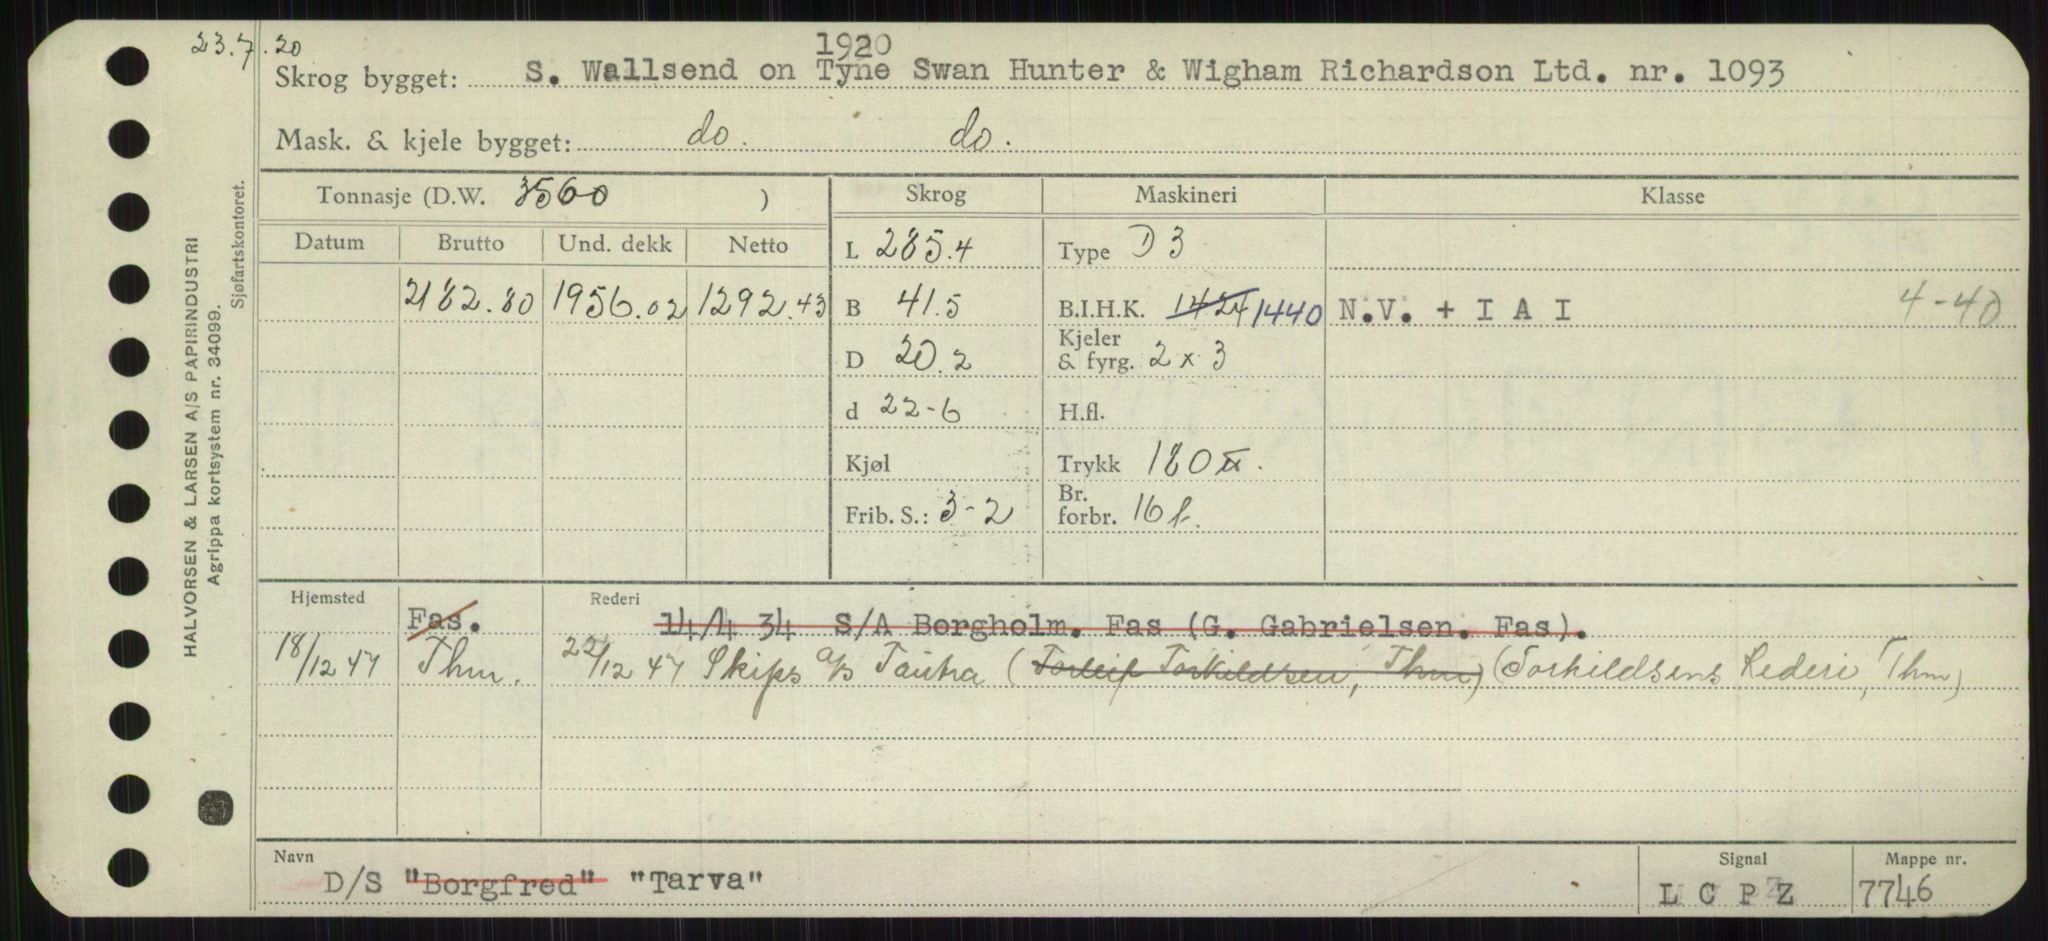 23.7.20
1920
Skrog bygget: S. Wallsend on Tyne Swan Hunter & Wigham Richardson Ltd. nr. 1093
Mask. & kjele bygget: do. do.
Tonnasje (D.W. 3560 ) Skrog Maskineri Klasse
Datum Brutto Und. dekk Netto L 285.4 Type D 3
2182.80 1956.02 1292.43 B 41.5 B.I.H.K. 1424 1440 N.V. + I A I 4-40
D 20.2 Kjeler & fyrg. 2 x 3
d 22-6 H.fl.
Kjøl Trykk 180
Frib. S.: 3-2 Br. forbr. 16 t.
Hjemsted Rederi
Fas. 14/4 34 S/A Borgholm. Fas (G. Gabrielsen. Fas).
18/12 47 Thm. 22/12 47 Skips a/s Tautra (Torleif Torkildsen, Thm) (Torkildsens Rederi, Thm)
Navn Signal Mappe nr.
D/S "Borgfred" "Tarva" L C P Z 7746
HALVORSEN & LARSEN A/S PAPIRINDUSTRI
Agrippa kortsystem nr. 34099.
Sjøfartskontoret.